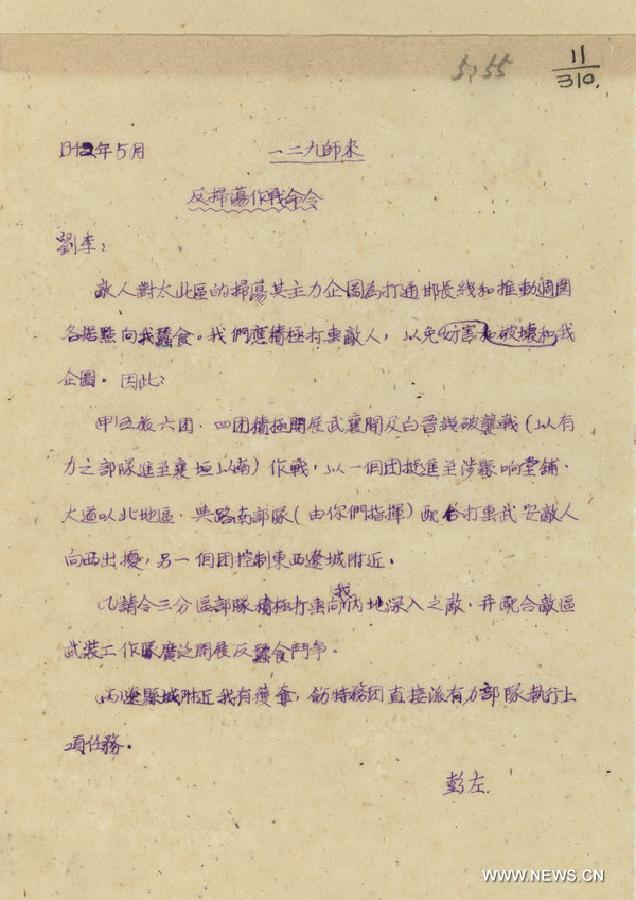 5,55
11
310.
1942年5月 一二九師來
反掃蕩作戰命令
劉李：
敵人對太北區的掃蕩其主力企圖為打通邯長线和推動週圍
各据點向我蠶食。我們應積極打击敵人，以免妨害和破壞和我
企圖。因此：
甲)五旅六团．四团積極開展武襄間及白晉綫破襲戰（以有
力之部隊進至襄垣以南）作戰，以一個团挺進至涉縣响堂鋪．
大道以北地區．與路南部隊（由你們指揮）配合打击武安敵人
向西出擾，另一個团控制東西遼城附近．
乙)請令三分區部隊積極打击向我内地深入之敵．并配合敵區
武装工作隊廣泛開展反蠶食鬥争．
丙)遼縣城附近我有獲奪，飭特務团直接派有力部隊執行上
項任務．
彭左.
WWW.NEWS.CN